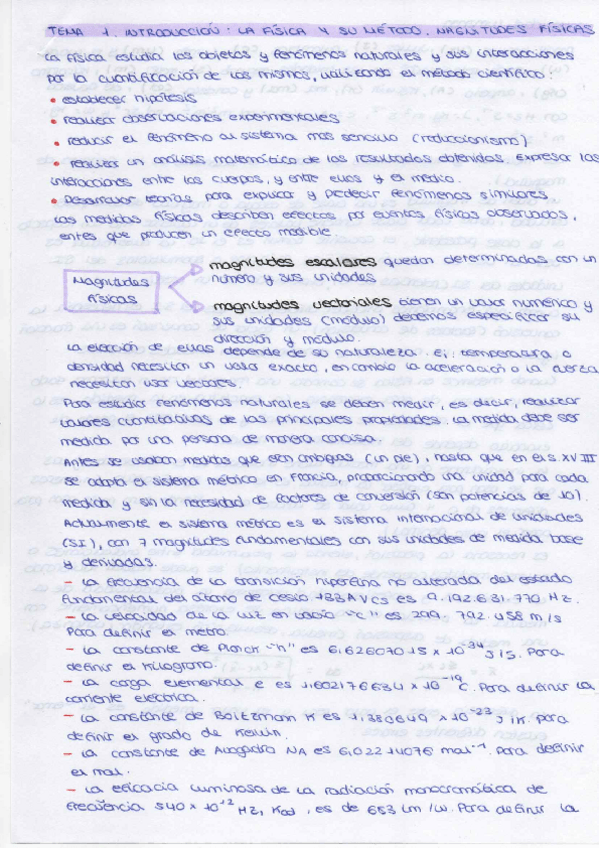 TEMA 1. INTRODUCCIÓN: LA FÍSICA Y SU MÉTODO. MAGNITUDES FÍSICAS
La física estudia los objetos y fenómenos naturales y sus interacciones
por la cuantificación de los mismos, utilizando el método científico:
• establecer hipótesis
• realizar observaciones experimentales
• reducir el fenómeno al sistema mas sencillo (reduccionismo)
• realizar un análisis matemático de los resultados obtenidos. Expresar las
interacciones entre los cuerpos, y entre ellos y el medio.
• Desarrollar teorías para explicar y predecir fenómenos similares
Las medidas físicas describen efectos por eventos físicos observados,
entes que producen un efecto medible.
magnitudes escalares quedan determinadas con un
número y sus unidades
Magnitudes
físicas
magnitudes vectoriales tienen un valor numérico y
sus unidades (módulo) debemos especificar su
dirección y módulo.
La elección de ellas depende de su naturaleza. ej: temperatura o
densidad necesitan un valor exacto, en cambio la aceleración o la fuerza
necesitan usar vectores.
Para estudiar fenómenos naturales se deben medir, es decir, realizar
valores cuantitativos de las principales propiedades. La medida debe ser
medida por una persona de manera concisa.
Antes se usaban medidas que eran ambigas (un pie), hasta que en el s XVIII
se adopta el sistema métrico en Francia, proporcionando una unidad para cada
medida y sin la necesidad de factores de conversión (son potencias de 10).
Actualmente el sistema métrico es el sistema internacional de unidades
(SI), con 7 magnitudes fundamentales con sus unidades de medida base
y derivadas.
- La frecuencia de la transición hiperfina no alterada del estado
fundamental del átomo de cesio 133 ΔνCs es 9.192.631.770 Hz.
- La velocidad de la luz en vacío "c" es 299.792.458 m/s
Para definir el metro.
- La constante de Planck "h" es 6,62607015 x 10⁻³⁴ J/s. Para
definir el kilogramo.
- La carga elemental e es 1,602176634 x 10⁻¹⁹ C. Para definir la
corriente eléctrica.
- La constante de Boltzmann K es 1,380649 x 10⁻²³ J/K. para
definir el grado de Kelvin.
- La constante de Avogadro NA es 6,02214076 mol⁻¹. Para definir
el mol.
- La eficacia luminosa de la radiación monocromática de
frecuencia 540 x 10¹² Hz, Kcd, es de 683 lm/W. Para definir la